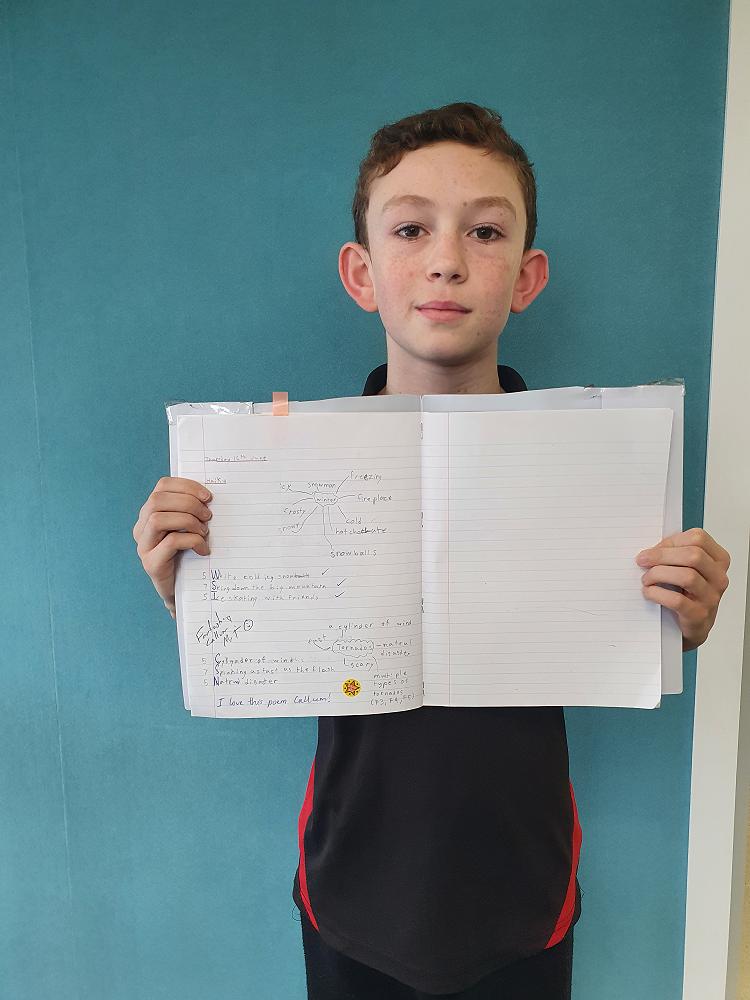 Thursday 16th June
Haiku
ice
snowman
freezing
winter
fireplace
frosty
snow
cold
hot chocolate
snowballs
5 White cold icy snow
7 Skiing down the big mountain
5 Ice skating with friends
Callum
Mr T
a cylinder of wind
fast
Tornados
natral
disaster
scary
multiple
types of
tornados
(F3, F4, F5)
5 Cylynder of wind
7 Spinning as fast as the flash
5 Natral disaster
I love this poem Callum!